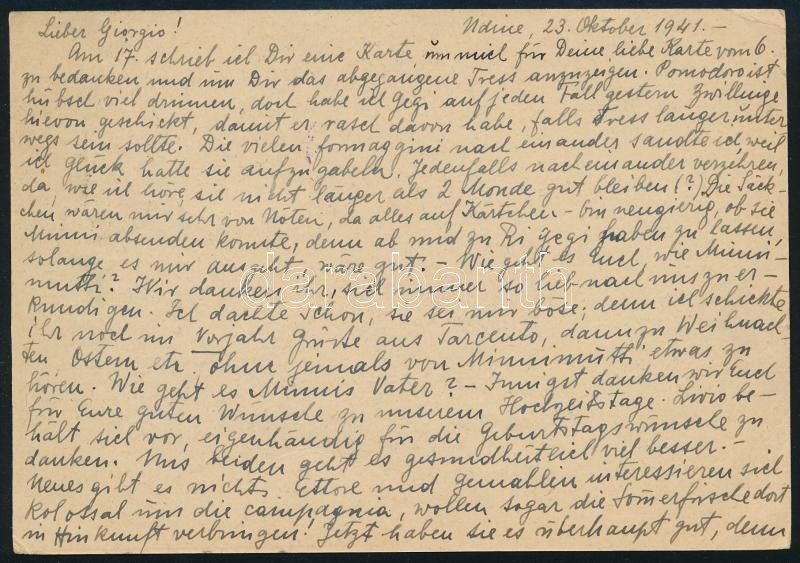 Lieber Giorgio! Udine, 23. Oktober 1941.–
Am 17. schrieb ich Dir eine Karte, um mich für Deine liebe Karte vom 6.
zu bedanken und um Dir das abgegangene Tress anzuzeigen. Pomodoro ist
hübsch viel drinnen, doch habe ich Gegi auf jeden Fall gestern Zwillinge
hievon geschickt, damit er rasch davon habe, falls Tress länger unter
wegs sein sollte. Die vielen formaggini nach einander sandte ich, weil
ich Glück hatte sie aufzugabeln. Jedenfalls nacheinander verzehren,
da, wie ich höre, sie nicht länger als 2 Monde gut bleiben (?) Die Säck-
chen wären mir sehr von Nöten, da alles auf Kärtchen – bin neugierig, ob sie
Mimi absenden konnte, denn ab und zu Ri Gegi haben zu lassen,
solange es mir ausgeht, wäre gut. – Wie geht es Euch, wie Mimi-
mutti? Wir danken ihr, sich immer so lieb nach uns zu er-
kundigen. Ich dachte schon, sie sei mir böse, denn ich schickte
ihr noch im Vorjahr Grüße aus Tarcento, dann zu Weihnach-
ten Ostern etc ohne jemals von Mimimutti etwas zu
hören. Wie geht es Mimis Vater? – Innigst danken wir Euch
für Eure guten Wünsche zu unserem Hochzeitstage. Livio be-
hält sich vor, eigenhändig für die Geburtstagswünsche zu
danken. Uns beiden geht es gesundheitlich viel besser. –
Neues gibt es nichts. Ettore und gemahlin interessieren sich
kolossal um die campagnia, wollen sogar die Somerfrische dort
in Hinkunft verbringen! Jetzt haben sie es überhaupt gut, denn
darabanth